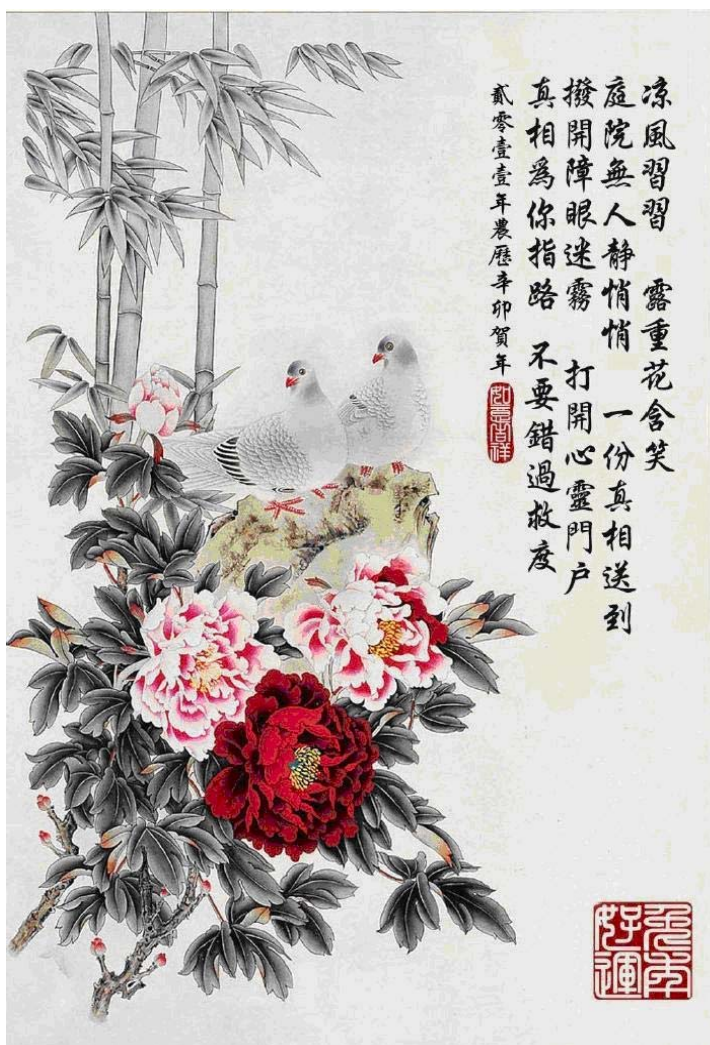 凉風習習 露重花含笑
庭院無人靜悄悄 一份真相送到
撥開障眼迷霧 打開心靈門戶
真相為你指路 不要錯過救度
貳零壹壹年農歷辛卯賀年
如意吉祥
兔年
好運